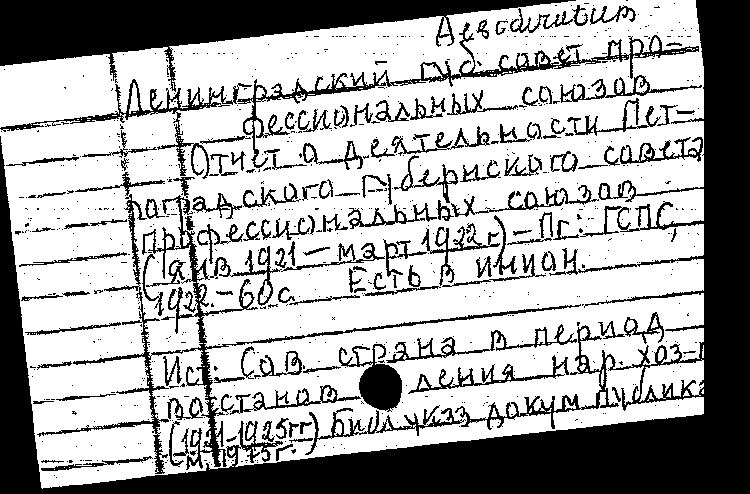 Ленинградский губ. совет про-
фессиональных союзов
Отчет о деятельности Пет-
роградского Губернского совета
профессиональных союзов
(янв 1921 — март 1922 г) – Пг: ГСПС,
1922. – 60 с. Есть в ИНИОН.
Ист: Сов страна в период
восстановления нар. хоз-
(1921-1925гг) Библ указ докум публика
М, 1975г.